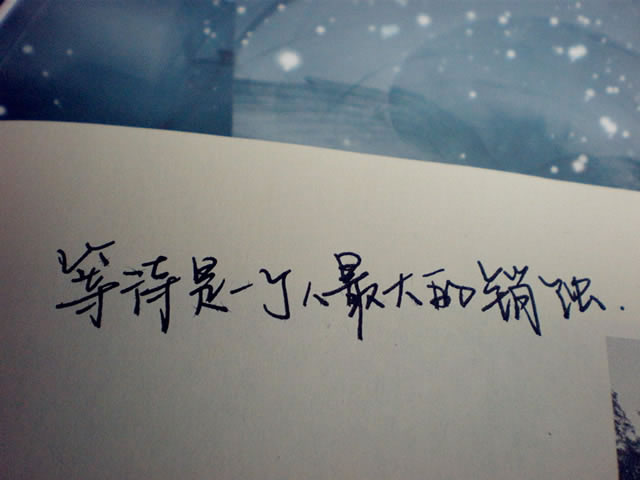 等待是一个人最大的销蚀.